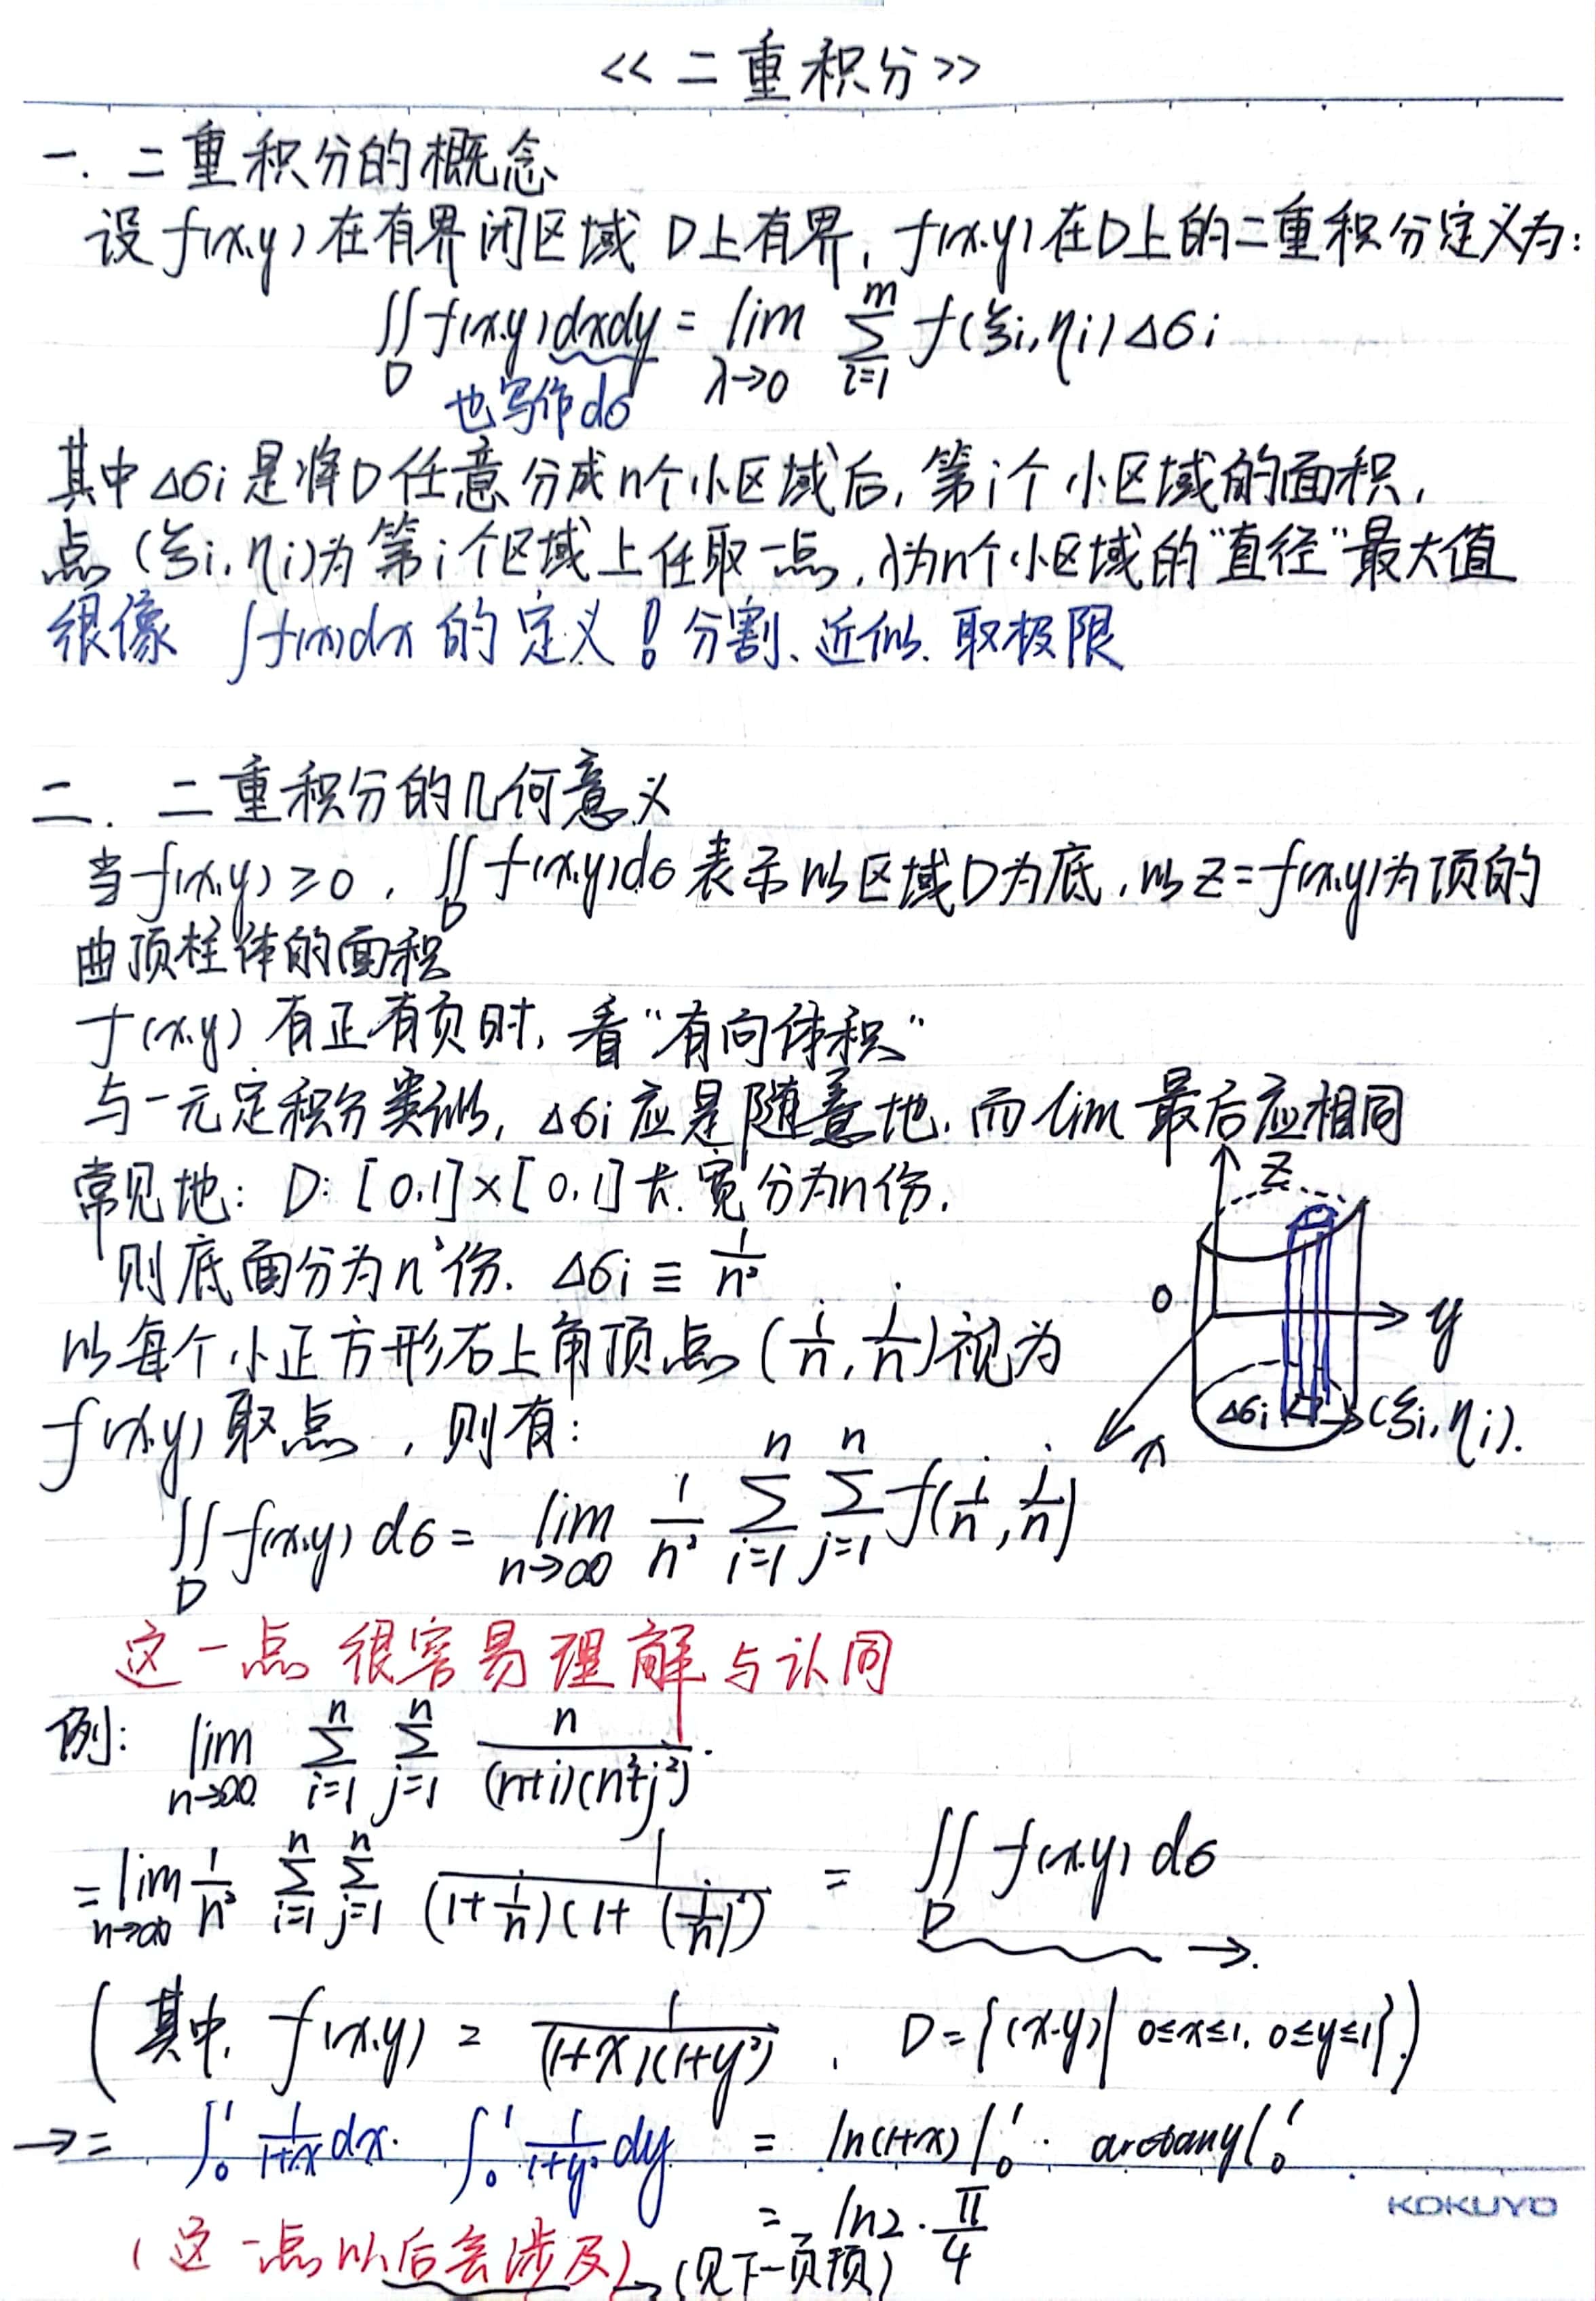 <<二重积分>>
一. 二重积分的概念
设 f(x,y) 在有界闭区域 D上有界, f(x,y)在D上的二重积分定义为:
∬_D f(x,y)dxdy = lim_{λ→0} Σ_{i=1}^{m} f(ξi,ηi)Δσi
也写作dσ
其中Δσi是将D任意分成n个小区域后, 第i个小区域的面积,
点(ξi,ηi)为第i个区域上任取一点, λ为n个小区域的"直径"最大值
很像 ∫f(x)dx的定义! 分割、近似、取极限
二. 二重积分的几何意义
当f(x,y)≥0, ∬_D f(x,y)dσ表示以区域D为底, 以z=f(x,y)为顶的
曲顶柱体的面积
f(x,y)有正有负时, 看"有向体积"
与一元定积分类似, Δσi应是随意地, 而lim最后应相同
常见地: D: [0,1]×[0,1]长.宽分为n份.
则底面分为n²份. Δσi ≡ 1/n²
以每个小正方形右上角顶点(i/n, j/n)视为
f(x,y)取点, 则有:
z
0
y
x
Δσi
(ξi,ηi).
∬_D f(x,y)dσ = lim_{n→∞} 1/n² Σ_{i=1}^{n} Σ_{j=1}^{n} f(i/n, j/n)
这一点很容易理解与认同
例: lim_{n→∞} Σ_{i=1}^{n} Σ_{j=1}^{n} n/((n+i)(n²+j²)).
= lim_{n→∞} 1/n² Σ_{i=1}^{n} Σ_{j=1}^{n} 1/((1+i/n)(1+(j/n)²)) = ∬_D f(x,y)dσ →.
(其中, f(x,y) = 1/((1+x)(1+y²)), D={(x,y)| 0≤x≤1, 0≤y≤1}.)
→= ∫₀¹ 1/(1+x) dx · ∫₀¹ 1/(1+y²) dy = ln(1+x)|₀¹ · arctany|₀¹
= ln2 · π/4
(这一点以后会涉及) → (见下一页顶)
KOKUYO